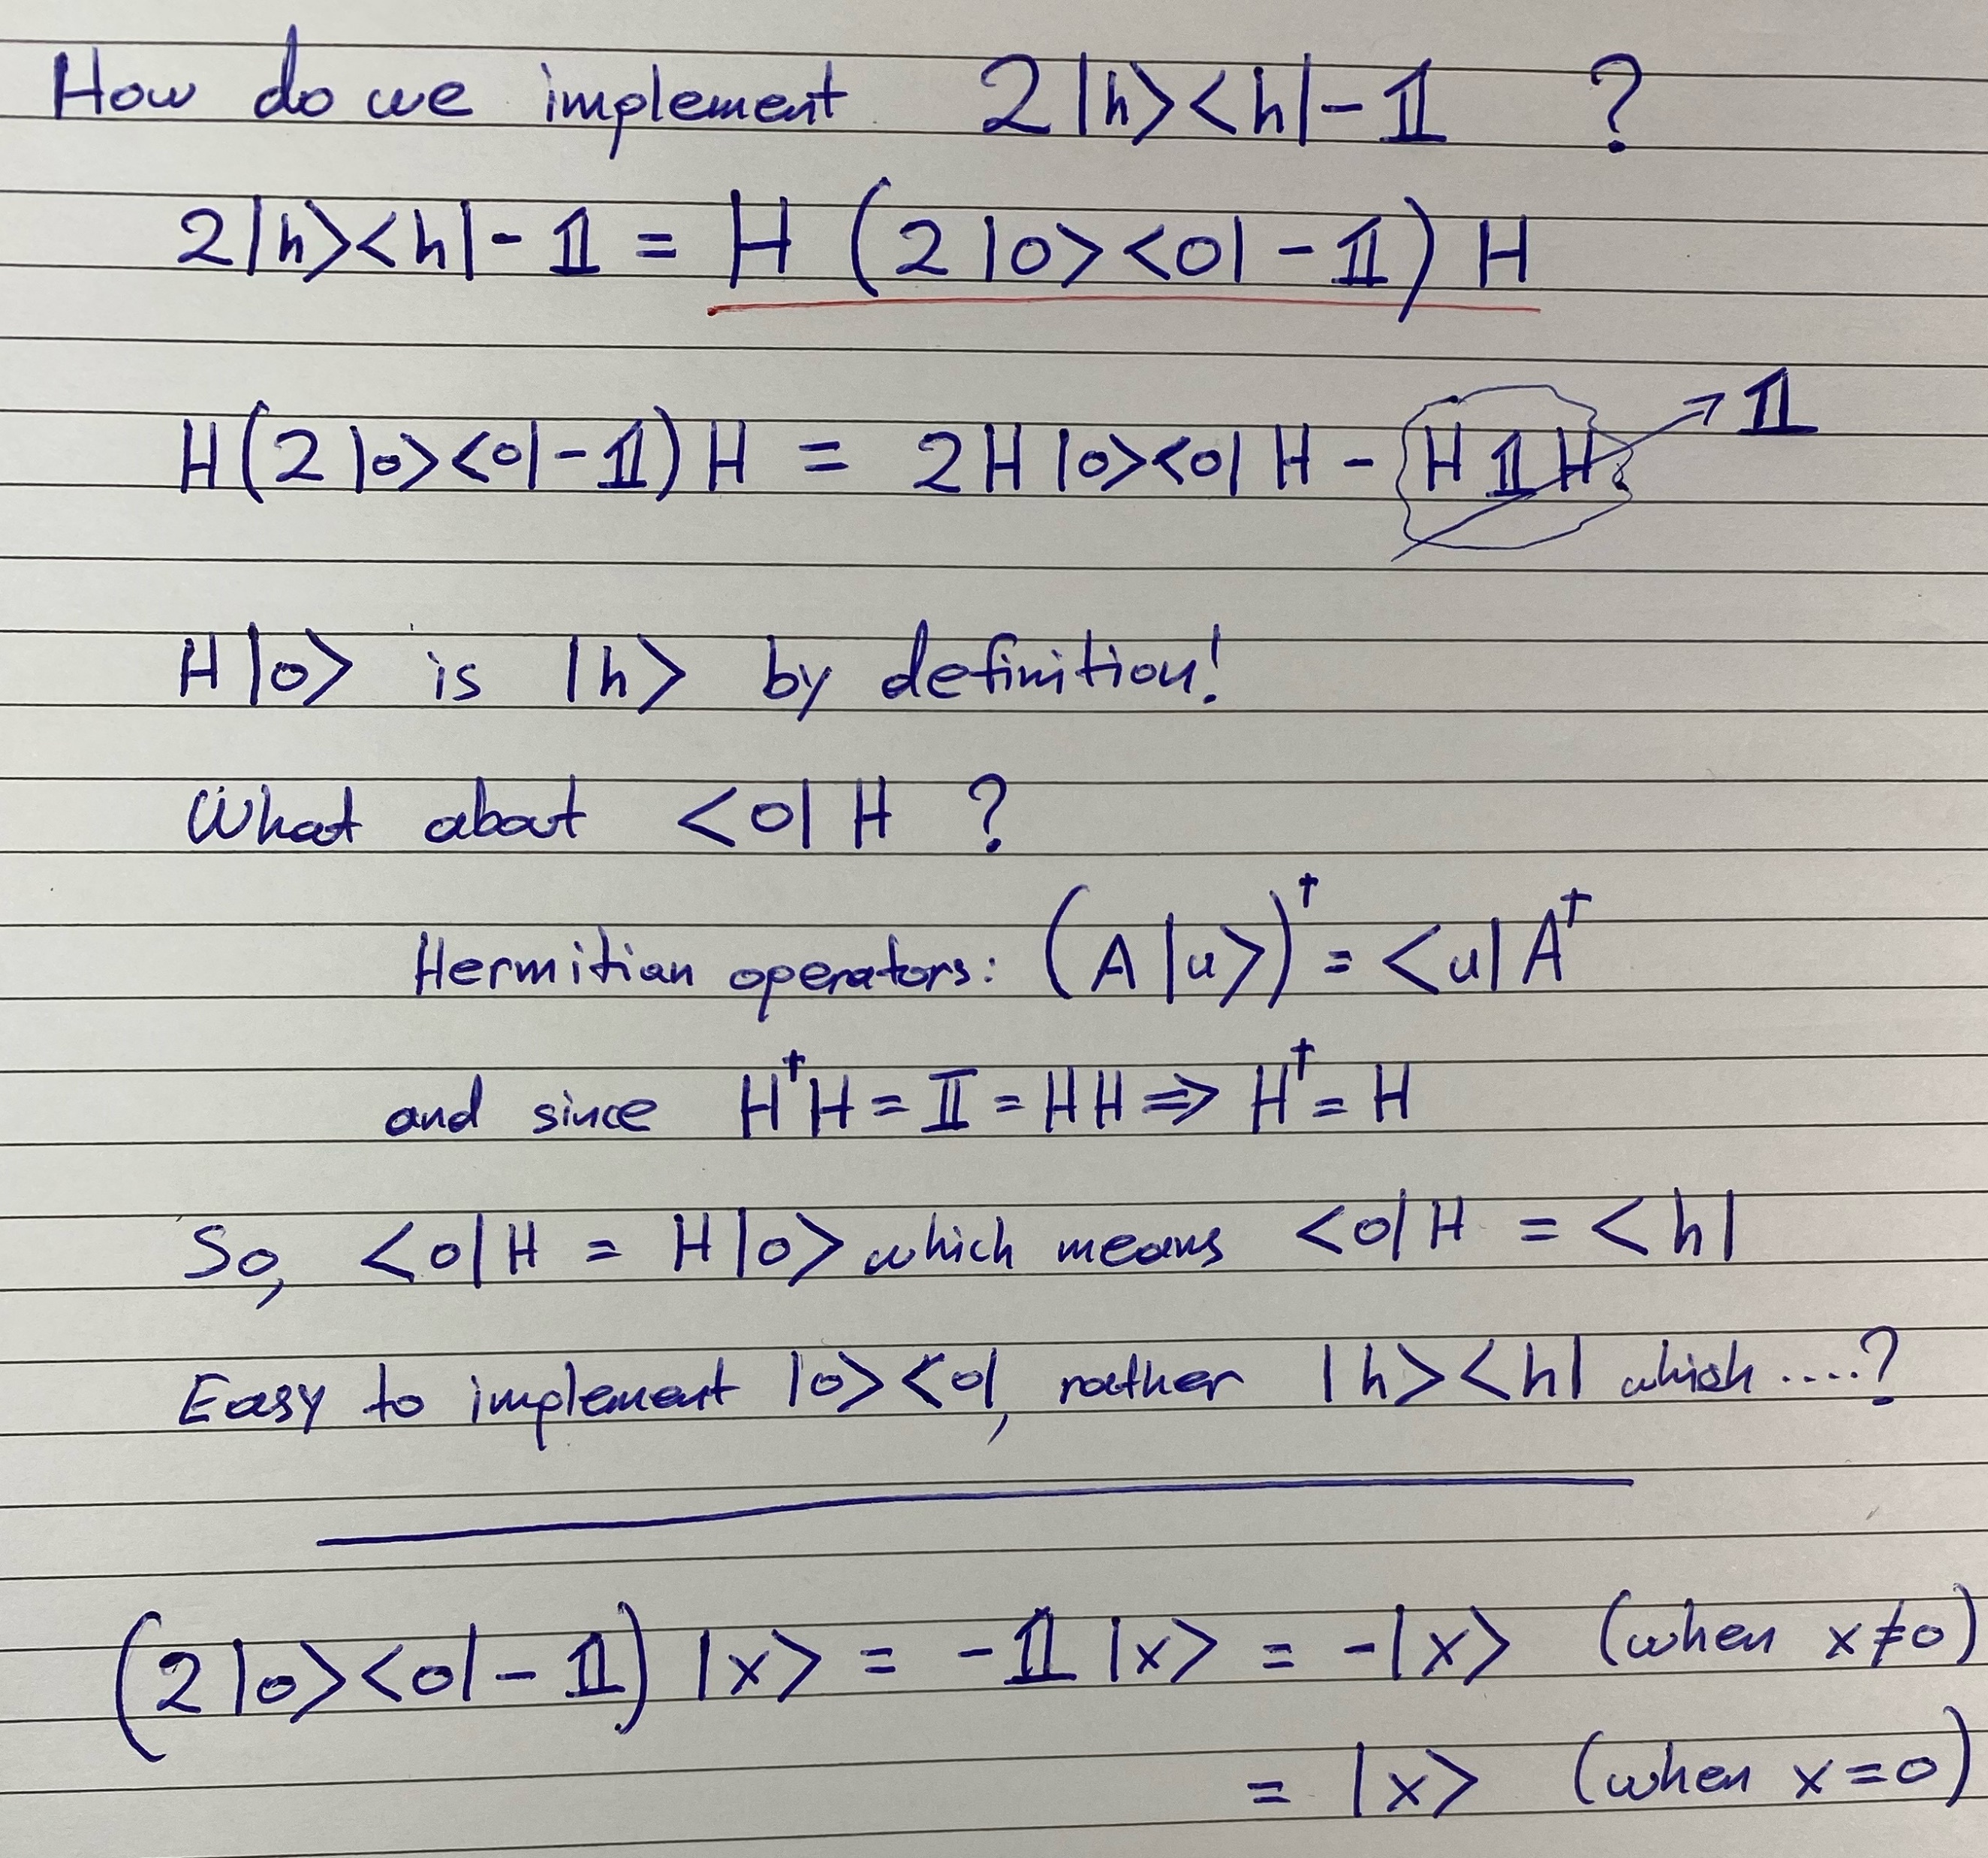 How do we implement 2|h><h|-𝟙 ?
2|h><h|-𝟙 = H (2|0><0|-𝟙) H
H(2|0><0|-𝟙)H = 2H|0><0|H - H𝟙H → 𝟙
H|0> is |h> by definition!
What about <0|H ?
Hermitian operators: (A|u>)† = <u|A†
and since H†H = I = HH => H† = H
So, <0|H = H|0> which means <0|H = <h|
Easy to implement |0><0|, rather |h><h| which ....?
(2|0><0|-𝟙)|x> = -𝟙|x> = -|x> (when x≠0)
= |x> (when x=0)